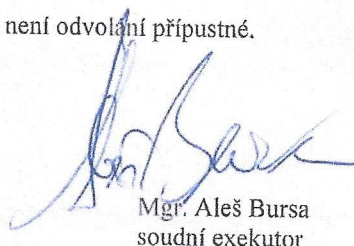 není odvolání přípustné.
Mgr. Aleš Bursa
soudní exekutor